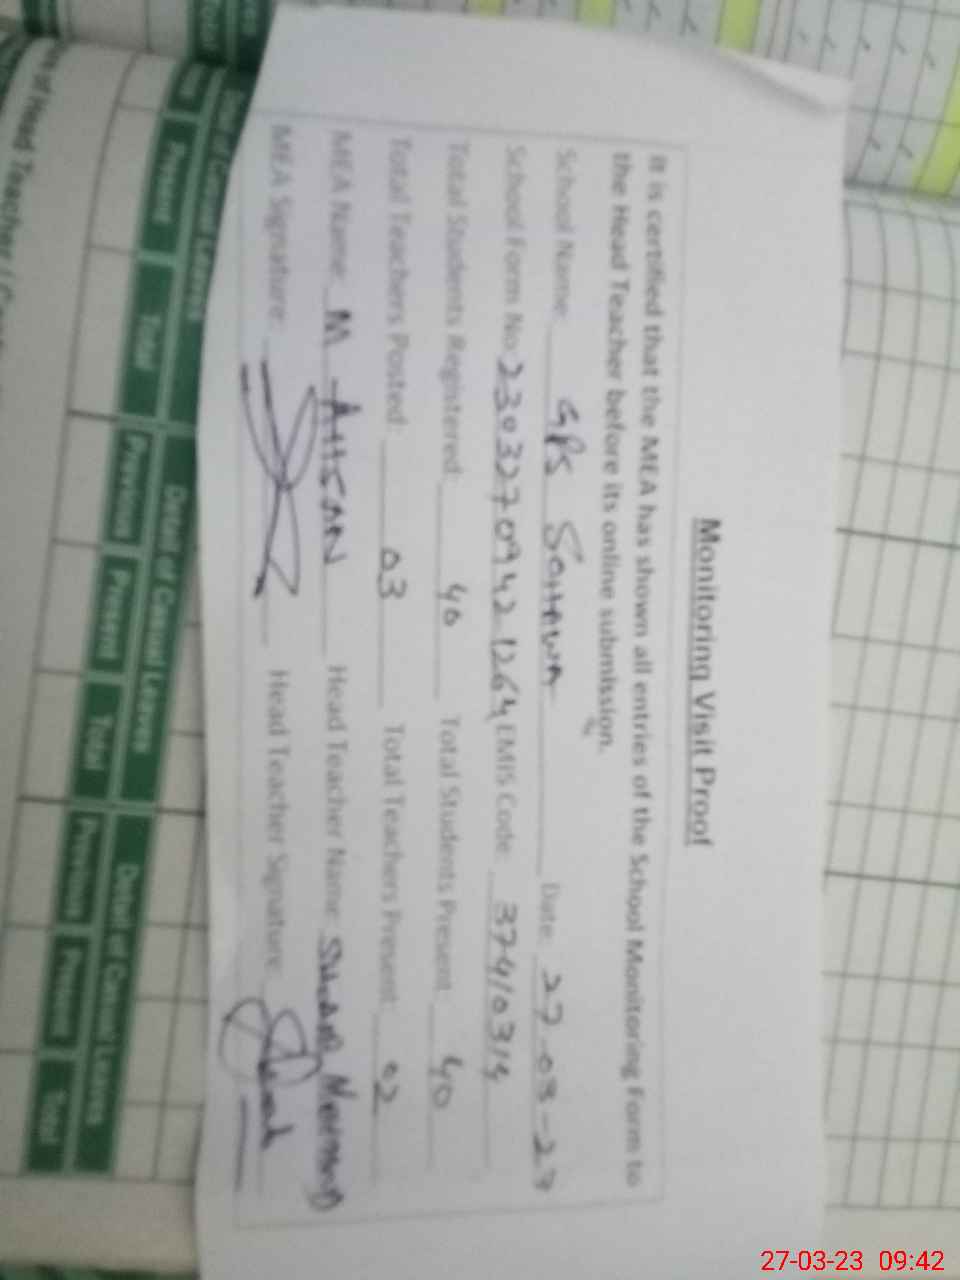 Monitoring Visit Proof
It is certified that the MEA has shown all entries of the School Monitoring Form to
the Head Teacher before its online submission.
School Name: GPS Date: 27-03-23
School Form No: 2303270942 1264 EMIS Code: 37410314
Total Students Registered: 40 Total Students Present: 40
Total Teachers Posted: 03 Total Teachers Present: 02
MEA Name: M AHSAN Head Teacher Name:
MEA Signature: Head Teacher Signature:
Detail of Casual Leaves
Present Total
Detail of Casual Leaves
Previous Present Total
Detail of Casual Leaves
Previous Present Total
of Head Teacher /
27-03-23 09:42